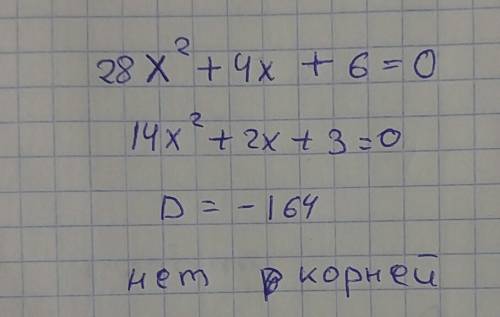 28x² + 4x + 6 = 0
14x² + 2x + 3 = 0
D = - 164
нет корней